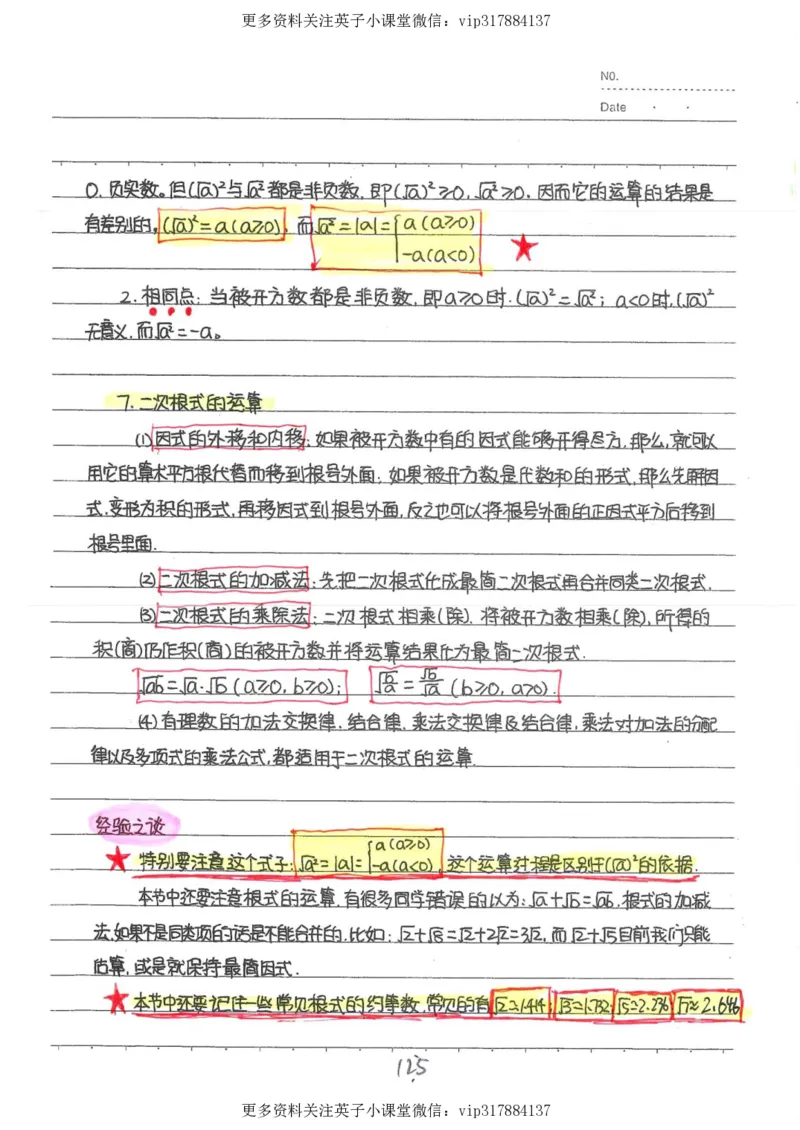 更多资料关注英子小课堂微信：vip317884137
NO.
Date
0.负实数。但(√a)²与√a²都是非负数,即(√a)²≥0,√a²≥0,因而它的运算的结果是
有差别的,(√a)²=a(a≥0),而√a²=|a|={a(a≥0)
-a(a<0)
2.相同点：当被开方数都是非负数,即a≥0时.(√a)²=√a²；a<0时,(√a)²
无意义,而√a²=-a。
7.二次根式的运算
(1)因式的外移和内移:如果被开方数中有的因式能够开得尽方,那么,就可以
用它的算术平方根代替而移到根号外面;如果被开方数是代数和的形式,那么先解因
式,变形为积的形式,再移因式到根号外面,反之也可以将根号外面的正因式平方后移到
根号里面.
(2)二次根式的加减法:先把二次根式化成最简二次根式再合并同类二次根式.
(3)二次根式的乘除法:二次根式相乘(除),将被开方数相乘(除),所得的
积(商)仍作积(商)的被开方数并将运算结果化为最简二次根式.
√ab=√a·√b(a≥0,b≥0); √(b/a)=√b/√a(b≥0,a>0).
(4)有理数的加法交换律,结合律,乘法交换律及结合律,乘法对加法的分配
律以及多项式的乘法公式,都适用于二次根式的运算.
经验之谈
★特别要注意这个式子:√a²=|a|={a(a≥0)
-a(a<0),这个运算过程是区别于(√a)²的依据.
本节中还要注意根式的运算,有很多同学错误的以为:√a+√b=√ab,根式的加减
法,如果不是同类项的话是不能合并的.比如:√2+√8=√2+2√2=3√2,而√2+√5目前我们只能
估算,或是就保持最简因式.
★本节中还要记住一些常见根式的约等数,常见的有√2≈1.414;√3≈1.732;√5≈2.236 √7≈2.646
125
更多资料关注英子小课堂微信：vip317884137